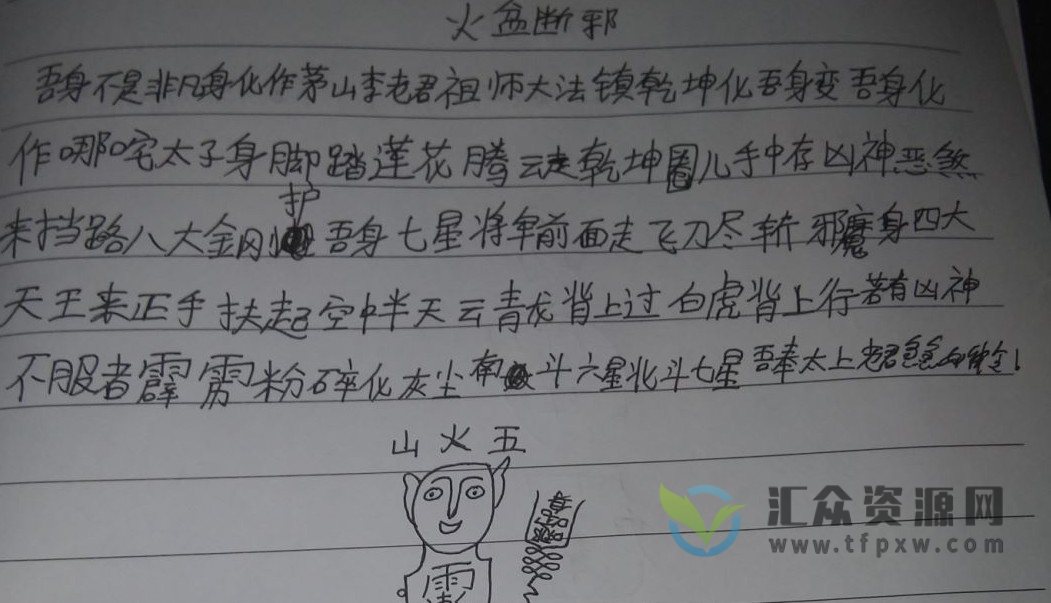 火盆断邪
吾身不是非凡身化作茅山李老君祖师大法镇乾坤化吾身变吾身化
作哪咤太子身脚踏莲花腾云走乾坤圈儿手中存凶神恶煞
来挡路八大金刚护吾身七星将军前面走飞刀尽斩邪魔身四大
天王来正手扶起空中半天云青龙背上过白虎背上行若有凶神
不服者霹雳粉碎化灰尘南斗六星北斗七星吾奉太上老君急急如律令
山火五
汇众资源网
www.tfpxw.com